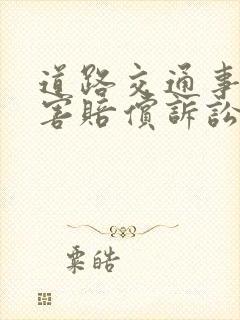 道路交通事
害賠償訴訟
粟皓